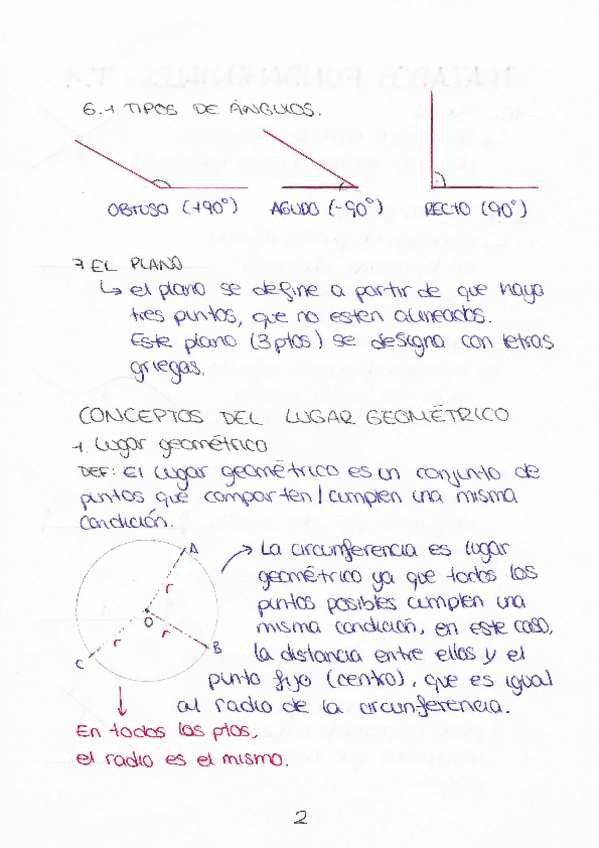 6.1 TIPOS DE ÁNGULOS.
OBTUSO (+90°) AGUDO (-90°) RECTO (90°)
7 EL PLANO
↳ el plano se define a partir de que haya
tres puntos, que no esten alineados.
Este plano (3 ptos) se designa con letras
griegas.
CONCEPTOS DEL LUGAR GEOMÉTRICO
1. Lugar geométrico
DEF: El lugar geométrico es un conjunto de
puntos que comparten/cumplen una misma
condición.
A
B
C
O
r
r
r
→ La circunferencia es lugar
geométrico ya que todos los
puntos posibles cumplen una
misma condición, en este caso,
la distancia entre ellos y el
punto fijo (centro), que es igual
al radio de la circunferencia.
↓
En todos los ptos,
el radio es el mismo.
2